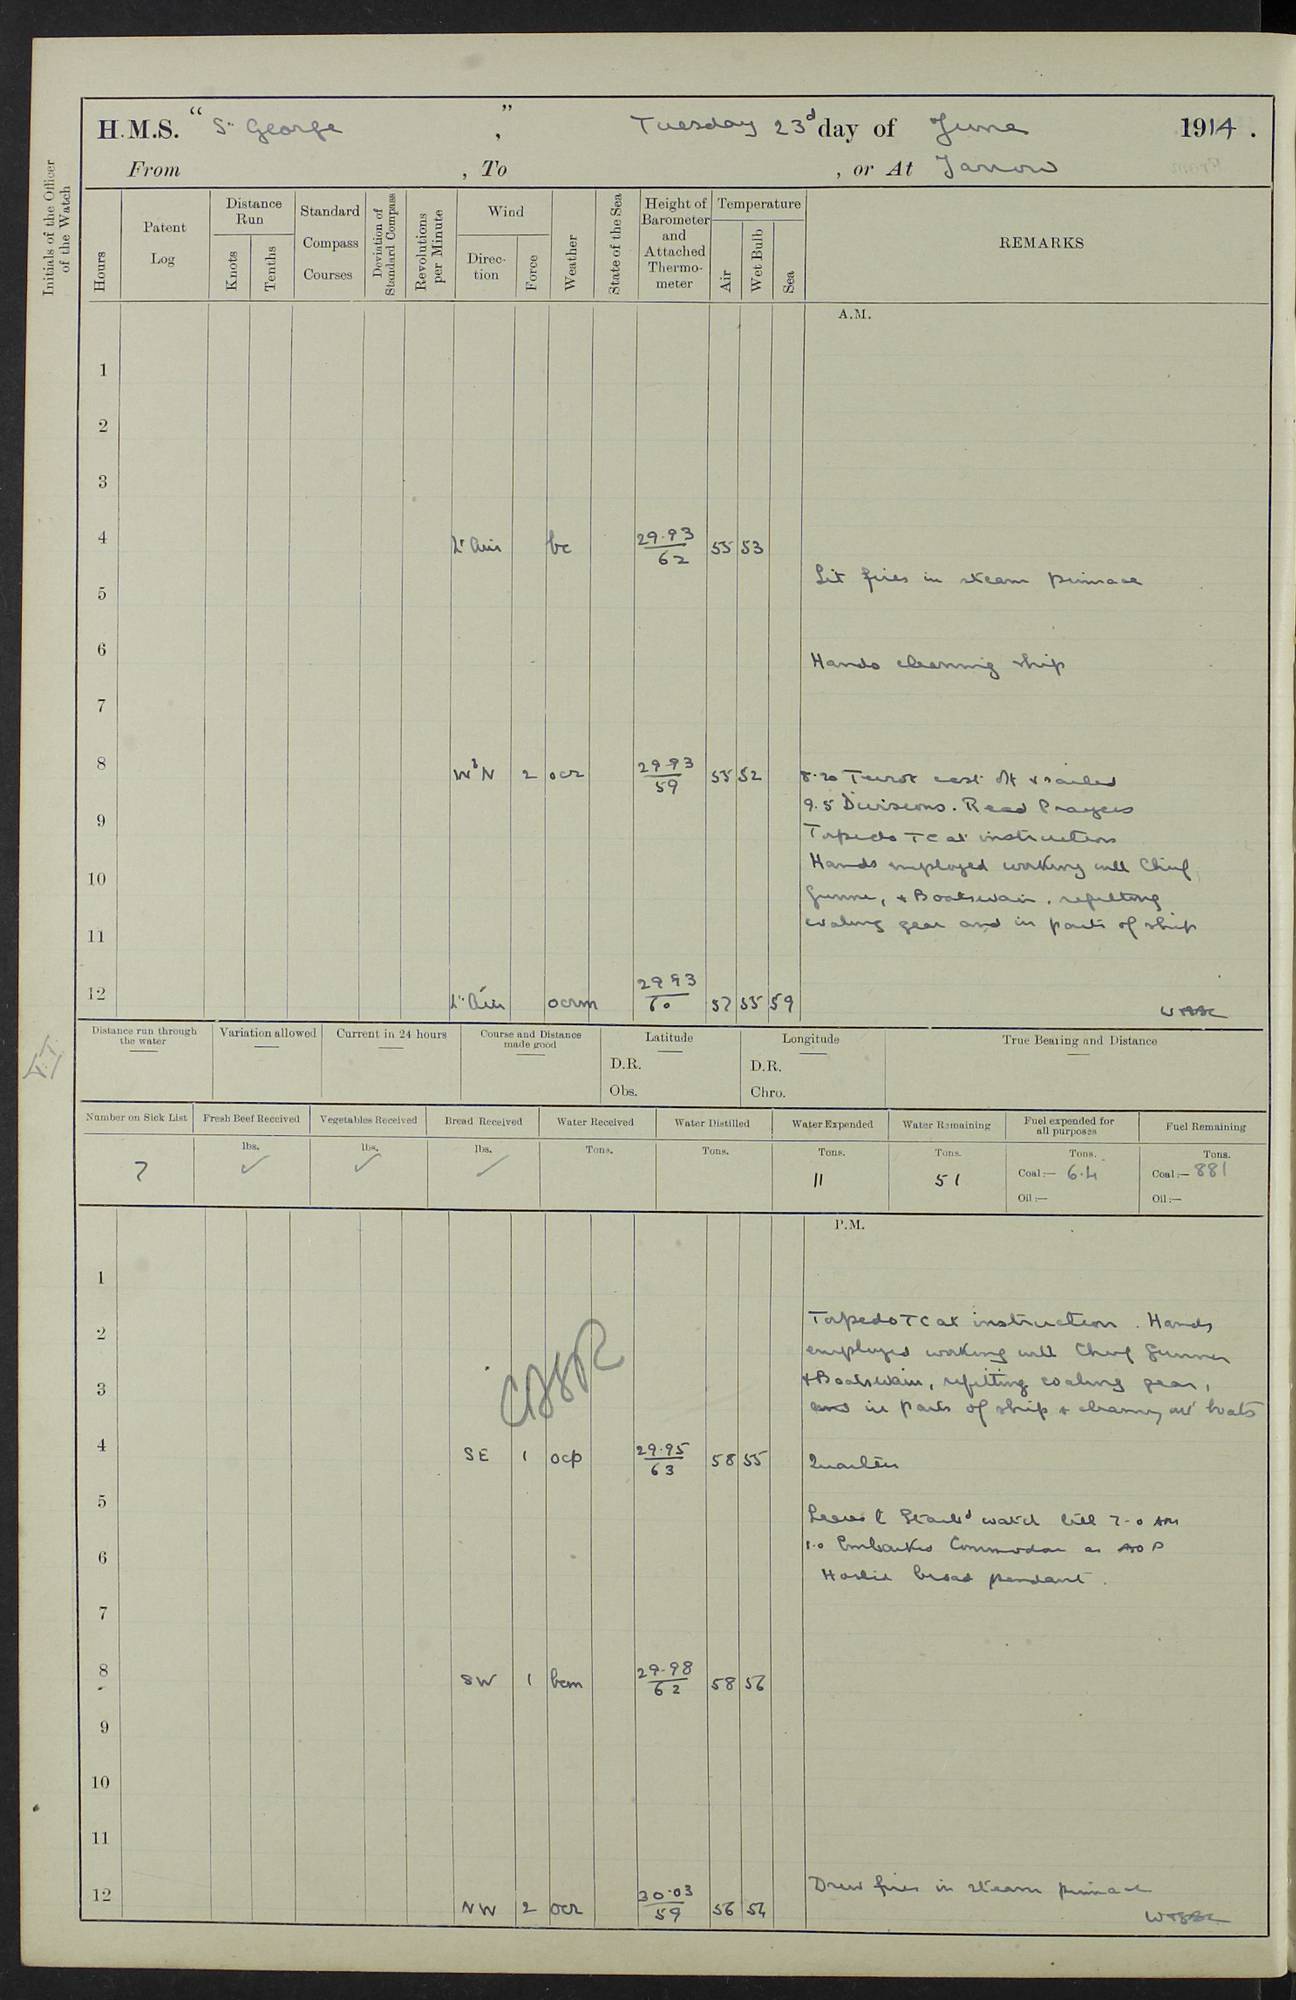 H.M.S. "St George", Tuesday 23d day of June 1914.
From , To , or At Jarrow
Initials of the Officer of the Watch
Hours
Patent Log
Distance Run
Knots
Tenths
Standard Compass Courses
Deviation of Standard Compass
Revolutions per Minute
Wind
Direction
Force
Weather
State of the Sea
Height of Barometer and Attached Thermometer
Temperature
Air
Wet Bulb
Sea
REMARKS
A.M.
1
2
3
4 Lt Airs bc 29.93 62 55 53
Lit fires in steam pinnace
5
6
Hands cleaning ship
7
8 WbN 2 ocr 29.93 59 55 52
8.20 cast off & sailed
9.5 Divisions. Read Prayers
9
Torpedo TC at instruction
Hands employed working with Chief
10
Gunner, & Boatswain, refitting
coaling gear and in parts of ship
11
12 Lt Airs ocrm 29.93 60 57 55 59
Distance run through the water
Variation allowed
Current in 24 hours
Course and Distance made good
Latitude
D.R.
Obs.
Longitude
D.R.
Chro.
True Bearing and Distance
Number on Sick List
Fresh Beef Received
Vegetables Received
Bread Received
Water Received
Water Distilled
Water Expended
Water Remaining
Fuel expended for all purposes
Fuel Remaining
7
lbs. ✓
lbs. ✓
lbs. ✓
Tons.
Tons.
Tons. 11
Tons. 51
Tons. Coal:— 6.4
Oil:—
Tons. Coal:— 881
Oil:—
P.M.
1
2
Torpedo TC at instruction. Hands
employed working with Chief Gunner
3
& Boatswain, refitting coaling gear,
and in parts of ship & cleaning out boats
4 SE 1 ocp 29.95 63 58 55 Quarters
5
Leave to Starbd watch till 7.0 AM
6
Embarked Commodore
broad pendant.
7
8 SW 1 bcm 29.98 62 58 56
9
10
11
Drew fires in steam pinnace
12 NW 2 ocr 30.03 59 56 54